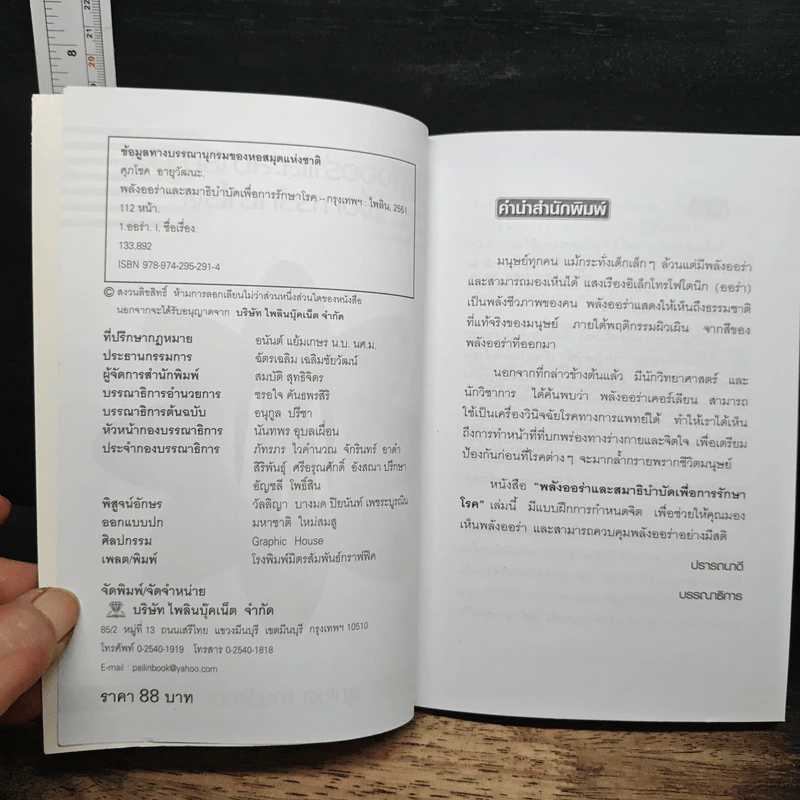 8
22
21
20
ข้อมูลทางบรรณานุกรมของหอสมุดแห่งชาติ
ศุภโชค อายุวัฒนะ.
พลังออร่าและสมาธิบำบัดเพื่อการรักษาโรค.--กรุงเทพฯ : ไพลิน, 2551.
112 หน้า.
1.ออร่า. I. ชื่อเรื่อง.
133.892
ISBN 978-974-295-291-4
© สงวนลิขสิทธิ์ ห้ามการลอกเลียนไม่ว่าส่วนหนึ่งส่วนใดของหนังสือ
นอกจากจะได้รับอนุญาตจาก บริษัท ไพลินบุ๊คเน็ต จำกัด
ที่ปรึกษากฎหมาย อนันต์ แย้มเกษร น.บ. นศ.ม.
ประธานกรรมการ ฉัตรเฉลิม เฉลิมชัยวัฒน์
ผู้จัดการสำนักพิมพ์ สมบัติ สุทธิจิตร
บรรณาธิการอำนวยการ ชรอใจ คันธพรสิริ
บรรณาธิการต้นฉบับ อนุกูล ปรีชา
หัวหน้ากองบรรณาธิการ นันทพร อุบลเผื่อน
ประจำกองบรรณาธิการ ภัทรภร ไวคำนวณ จักรินทร์ อาดำ
สิริพันธุ์ ศรีอรุณศักดิ์ อังสณา ปรึกษา
อัญชลี โพธิ์สิน
พิสูจน์อักษร วัลลิญา บางมด ปิยนันท์ เพชรบูรณิน
ออกแบบปก มหาชาติ ใหม่สมสู
ศิลปกรรม Graphic House
เพลต/พิมพ์ โรงพิมพ์มิตรสัมพันธ์กราฟฟิค
จัดพิมพ์/จัดจำหน่าย
บริษัท ไพลินบุ๊คเน็ต จำกัด
85/2 หมู่ที่ 13 ถนนเสรีไทย แขวงมีนบุรี เขตมีนบุรี กรุงเทพฯ 10510
โทรศัพท์ 0-2540-1919 โทรสาร 0-2540-1818
E-mail : pailinbook@yahoo.com
ราคา 88 บาท
คำนำสำนักพิมพ์
มนุษย์ทุกคน แม้กระทั่งเด็กเล็กๆ ล้วนแต่มีพลังออร่า
และสามารถมองเห็นได้ แสงเรืองอิเล็กโทรโฟโตนิก (ออร่า)
เป็นพลังชีวภาพของคน พลังออร่าแสดงให้เห็นถึงธรรมชาติ
ที่แท้จริงของมนุษย์ ภายใต้พฤติกรรมผิวเผิน จากสีของ
พลังออร่าที่ออกมา
นอกจากที่กล่าวข้างต้นแล้ว มีนักวิทยาศาสตร์ และ
นักวิชาการ ได้ค้นพบว่า พลังออร่าเคอร์เลียน สามารถ
ใช้เป็นเครื่องวินิจฉัยโรคทางการแพทย์ได้ ทำให้เราได้เห็น
ถึงการทำหน้าที่ที่บกพร่องทางร่างกายและจิตใจ เพื่อเตรียม
ป้องกันก่อนที่โรคต่างๆ จะมากล้ำกรายพรากชีวิตมนุษย์
หนังสือ "พลังออร่าและสมาธิบำบัดเพื่อการรักษา
โรค" เล่มนี้ มีแบบฝึกการกำหนดจิต เพื่อช่วยให้คุณมอง
เห็นพลังออร่า และสามารถควบคุมพลังออร่าอย่างมีสติ
ปรารถนาดี
บรรณาธิการ